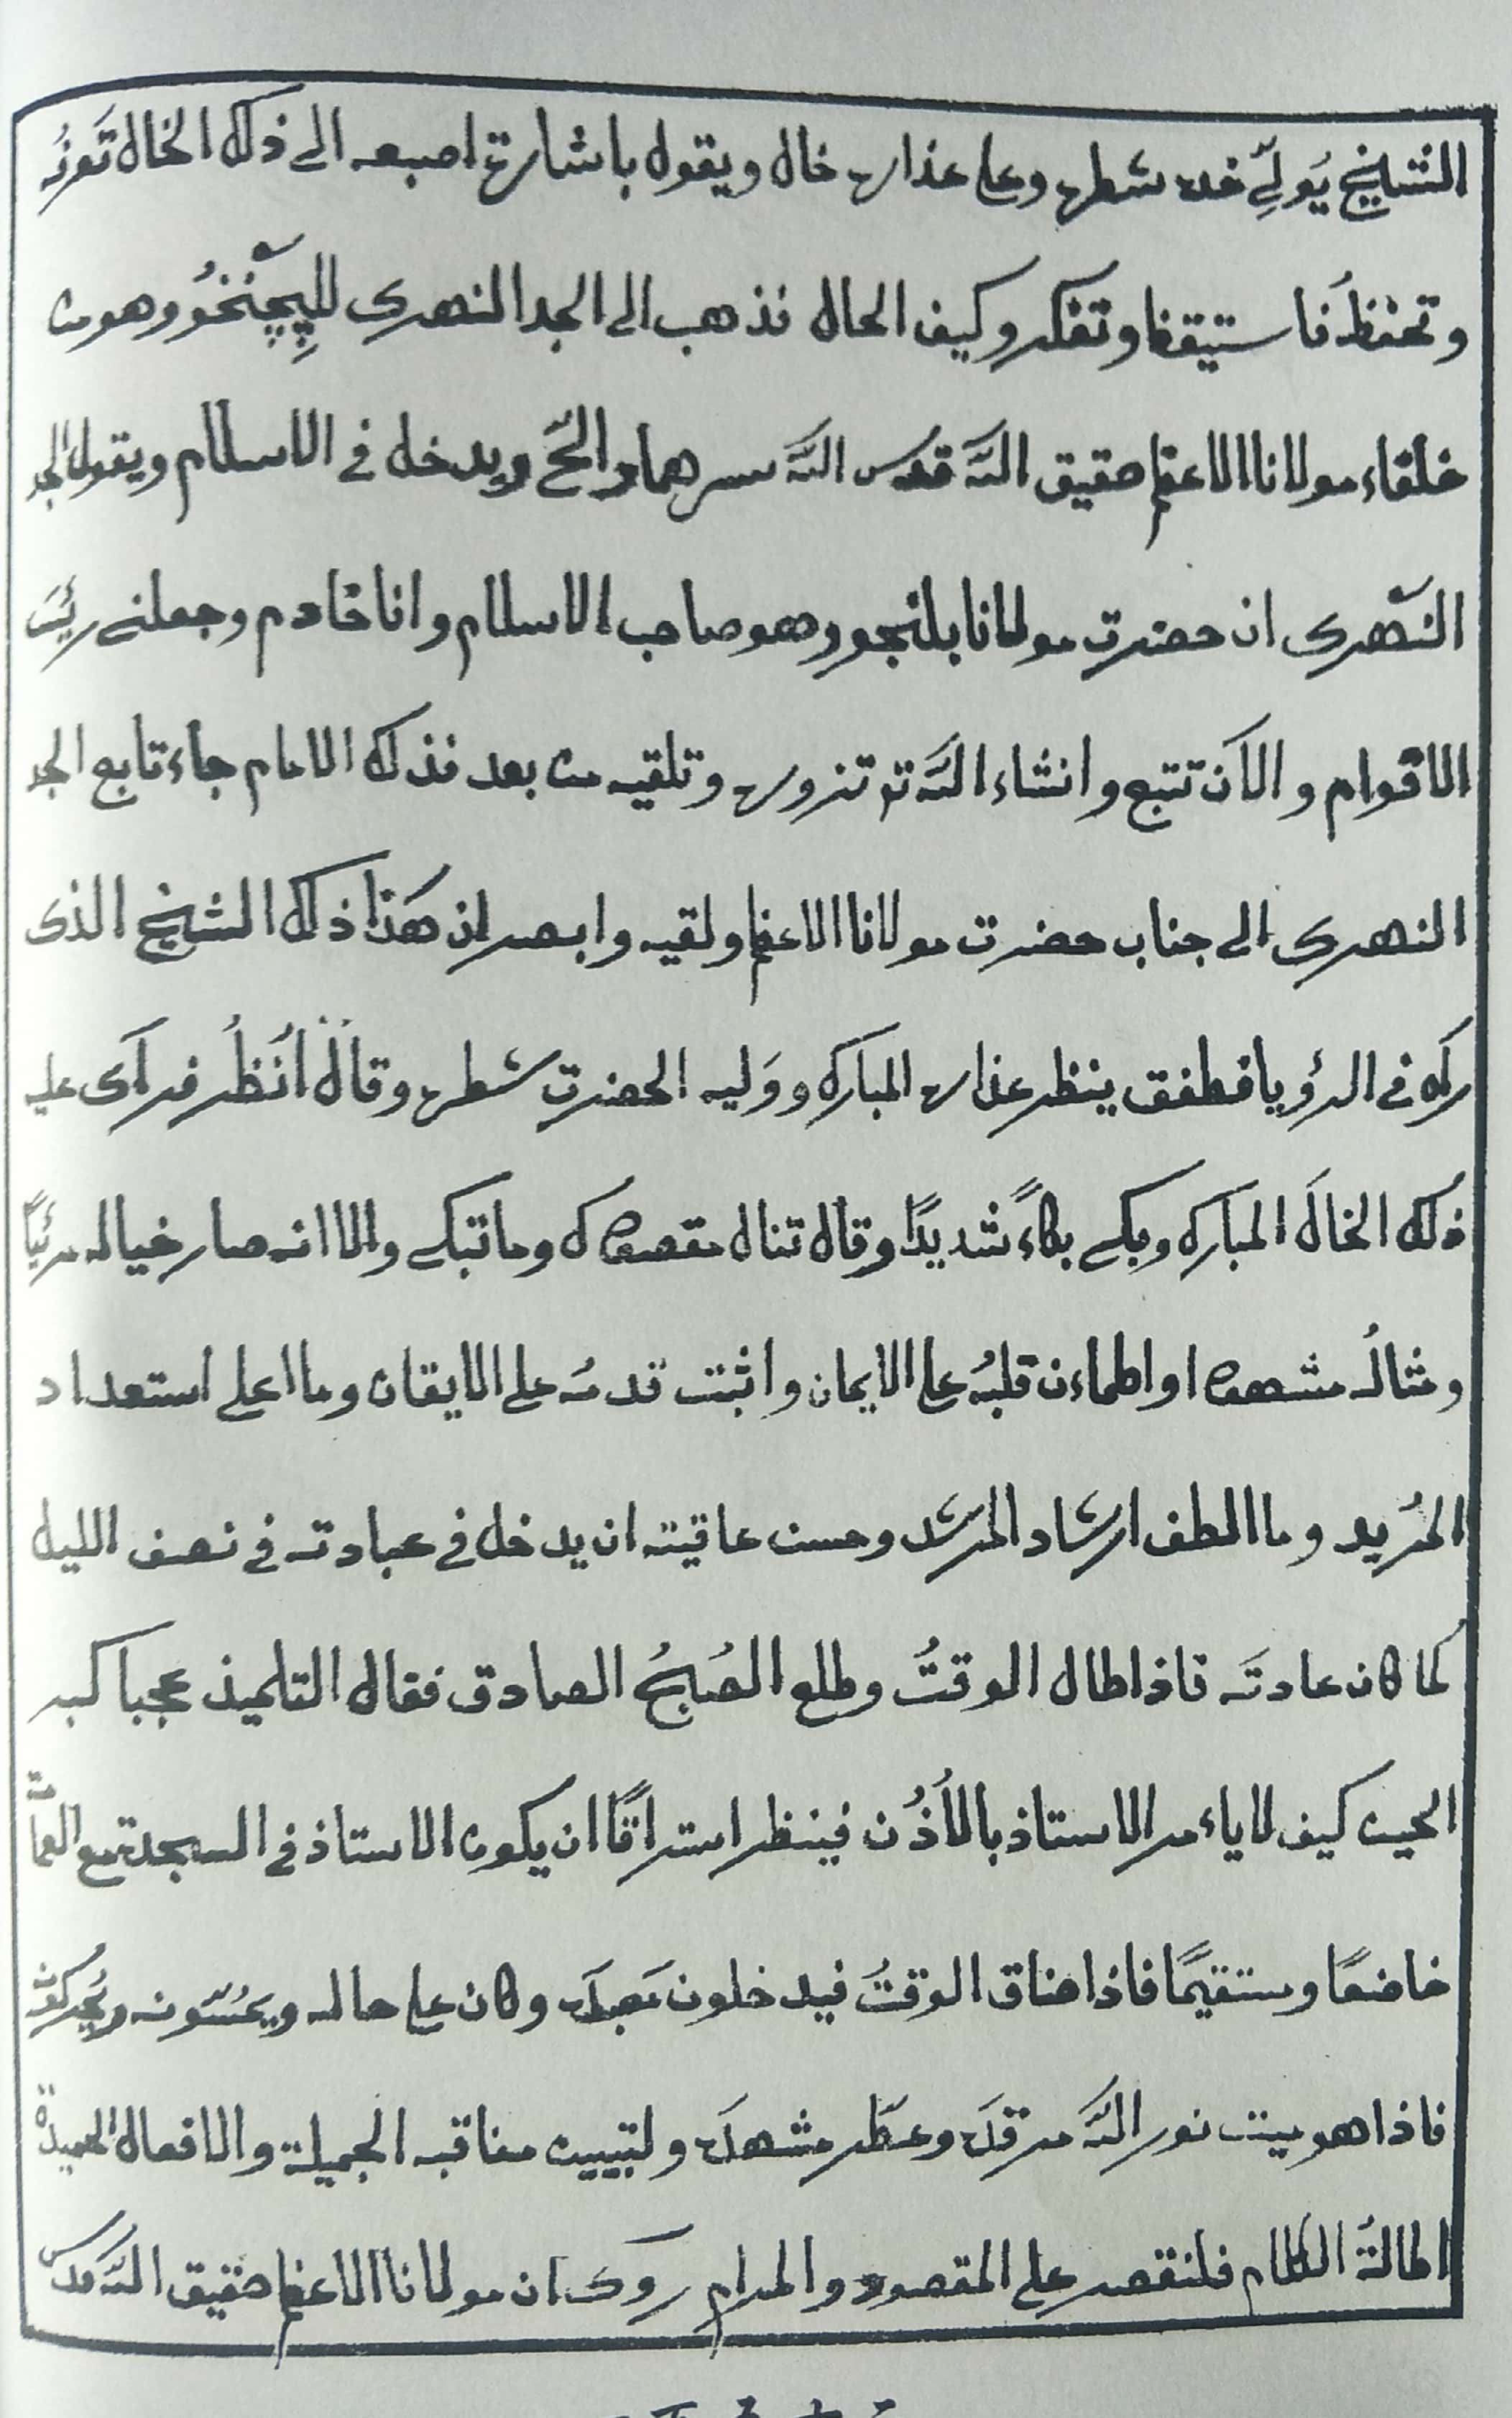 الشيخ يُولِّي خده شطره وعلى عذاره خال ويقول باشارة اصبعه الى ذلك الخال تَعرفُه
وتحفظُ فاستيقظ وتفكر وكيف الحال فذهب الى الجد النهرى وهو من
خلفاء مولانا الاعظم حقيق الله قدس الله سرهما والحَّ ويدخل فى الاسلام ويقول الجد
النَهرى ان حضرت مولانا بلنجور وهو صاحب الاسلام وانا خادم وجعلنى رئيسَ
الاقوام والآن تتبع وانشاء الله ثم تزوره وتلقيه من بعد فذلك الامام جاء تابع الجد
النهرى الى جناب حضرت مولانا الاعظم ولقيه وابصر ان هَذا ذلك الشيخ الذى
رآه فى الرؤيا فطفق ينظر عذاره المبارك ووَليه الحضرت شطره وقال اُنظُر فرآى عليه
ذلك الخالَ المبارك وبكى بكاءً شديدًا وقال تنال مقصودك وما تبكى والا انه صار خياله مرئيًا
ومثالُه مشهودا واطماءن قلبُه على الايمان واثبت قدمُه على الايقان وما اعلى استعداد
المُريد وما الطف ارشاد المرشد وحسن عاقبته ان يدخل فى عبادته فى نصف الليل
كما كان عادتَه فاذا طال الوقتُ وطلع الصُبحُ الصادق فقال التلميذ عجبا كبر
الحين كيف لا ياءمر الاستاذ بالأذُن فينظر استراقًا ان يكون الاستاذ فى السجدة مع
خاضعًا ومستقيمًا فاذا ضاق الوقتُ فيدخلون مَعبدَه وكان على حاله ويمسّونه
فاذا هو ميت نور الله مرقدَه وعطّر مشهدَه ولتبيين مناقبه الجميلة والافعال الحميدة
اطالةُ الكلام فلنقصر على المقصود والمرام روى ان مولانا الاعظم حقيق الله قدس